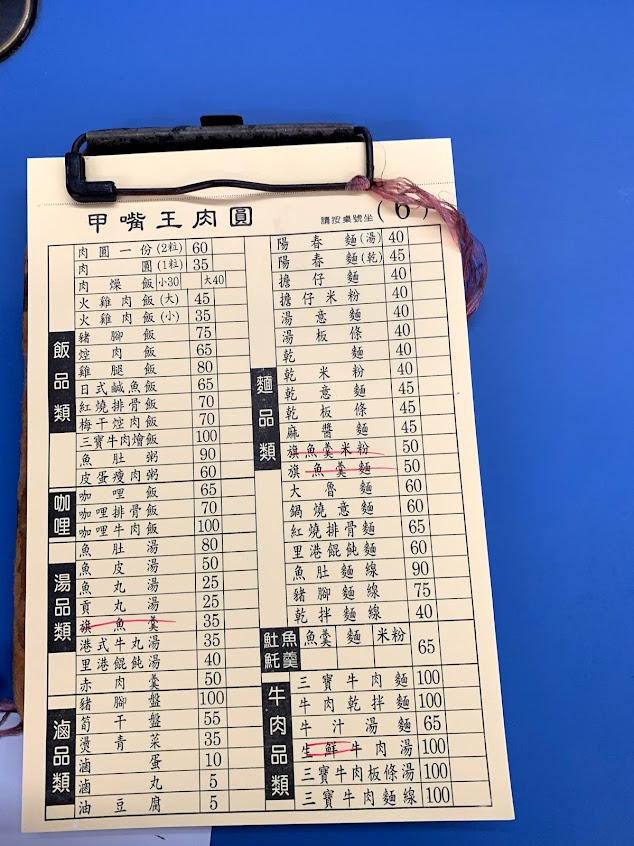 甲嘴王肉圓
請按桌號坐 (6)
飯品類
肉圓一份(2粒) 60
肉圓(1粒) 35
肉燥飯 小30 大40
火雞肉飯(大) 45
火雞肉飯(小) 35
豬腳飯 75
焢肉飯 65
雞腿飯 80
日式鹹魚飯 65
紅燒排骨飯 70
梅干焢肉飯 70
三寶牛肉燴飯 100
魚肚粥 90
皮蛋瘦肉粥 60
咖哩
咖哩飯 65
咖哩排骨飯 70
咖哩牛肉飯 100
湯品類
魚肚湯 80
魚皮湯 50
魚丸湯 25
貢丸湯 25
旗魚羹 35
港式牛丸湯 35
里港餛飩湯 40
赤肉羹 50
滷品類
豬腳盤 100
筍干盤 55
燙青菜 35
滷蛋 10
滷丸 5
油豆腐 5
麵品類
陽春麵(湯) 40
陽春麵(乾) 45
擔仔麵 40
擔仔米粉 40
湯意麵 40
湯板條 40
乾麵 40
乾米粉 40
乾意麵 45
乾板條 45
麻醬麵 45
旗魚羹米粉 50
旗魚羹麵 50
大魯麵 60
鍋燒意麵 60
紅燒排骨麵 65
里港餛飩麵 60
魚肚麵線 90
豬腳麵線 75
乾拌麵線 40
魠魠魚羹
魚羹 麵 米粉 65
牛肉品類
三寶牛肉麵 100
牛肉乾拌麵 100
牛汁湯麵 65
生鮮牛肉湯 100
三寶牛肉板條湯 100
三寶牛肉麵線 100